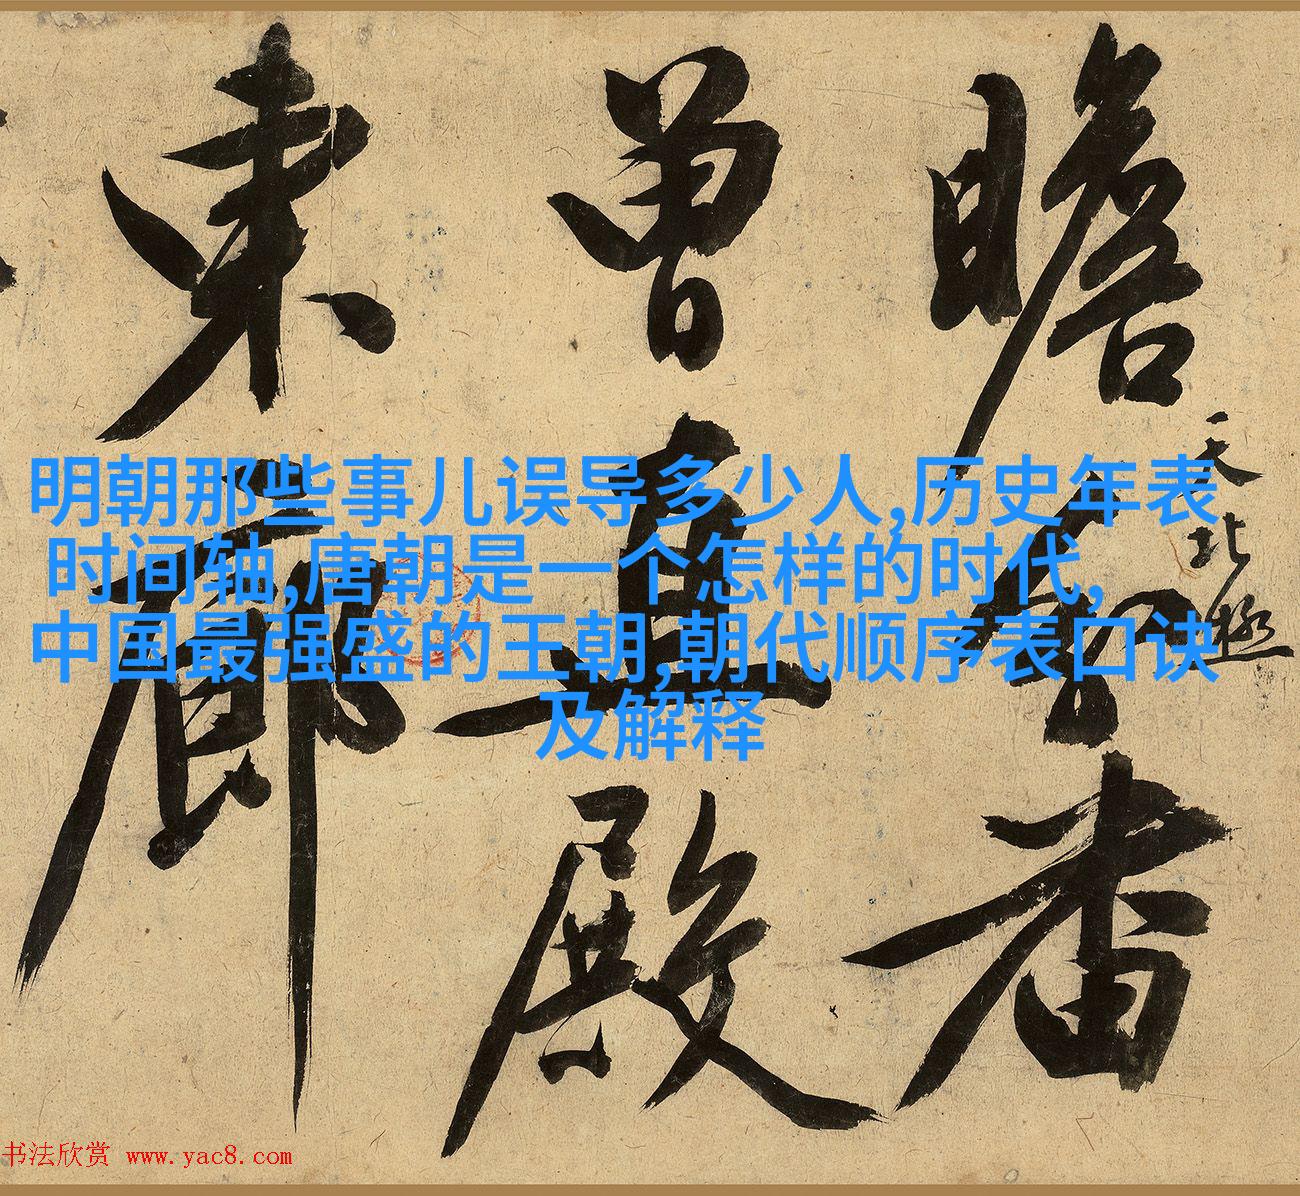 瞻
番
天北極
曾直殿
東廊
明朝那些事儿误导多少人,历史年表
时间轴,唐朝是一个怎样的时代,
中国最强盛的王朝,朝代顺序表口诀
及解释
书法欣赏 www.yac8.com